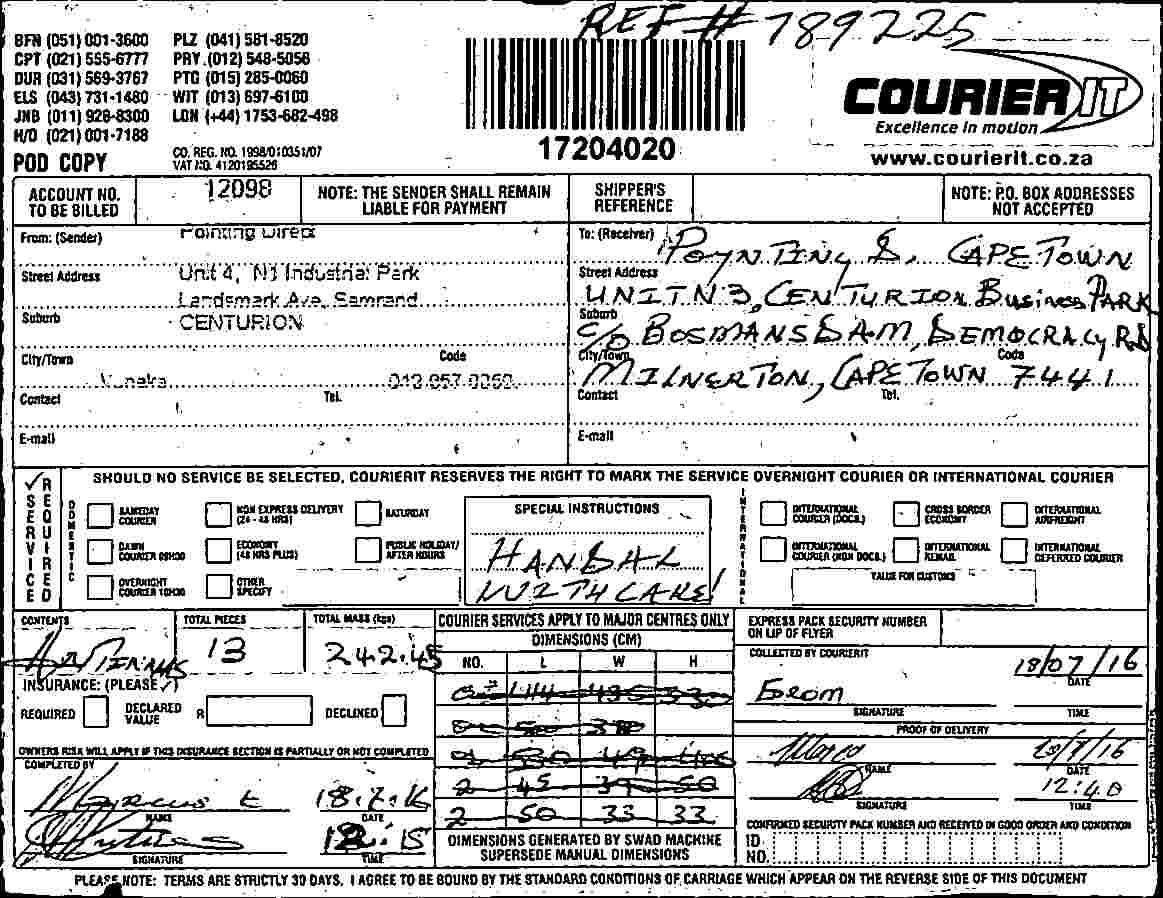 REF # 789225
BFN (051) 001-3600 PLZ (041) 581-8520
CPT (021) 555-6777 PRY (012) 548-5056
DUR (031) 569-3767 PTG (015) 285-0060
ELS (043) 731-1480 WIT (013) 697-6100
JNB (011) 928-8300 LON (+44) 1753-682-498
H/O (021) 001-7188
POD COPY
CO. REG. NO. 1998/010351/07
VAT NO. 4120195526
17204020
COURIER IT
Excellence in motion
www.courierit.co.za
ACCOUNT NO. TO BE BILLED
12098
NOTE: THE SENDER SHALL REMAIN LIABLE FOR PAYMENT
SHIPPER'S REFERENCE
NOTE: P.O. BOX ADDRESSES NOT ACCEPTED
From: (Sender) Pointing Direct
Street Address Unit 4, N1 Industrial Park
Landsmark Ave, Samrand
Suburb CENTURION
City/Town Code
Contact Tel.
E-mail
To: (Receiver) POYNTING D, CAPE TOWN
Street Address UNIT N3, CENTURION Business PARK
Suburb C/O BOSMANSDAM, DEMOCRACY RD
City/Town Code MILNERTON, CAPE TOWN 7441
Contact Tel.
E-mail
SERVICE REQUIRED
SHOULD NO SERVICE BE SELECTED, COURIERIT RESERVES THE RIGHT TO MARK THE SERVICE OVERNIGHT COURIER OR INTERNATIONAL COURIER
DOMESTIC
SAMEDAY COURIER
NON EXPRESS DELIVERY (24 - 48 HRS)
SATURDAY
DAWN COURIER 09H00
ECONOMY (48 HRS PLUS)
PUBLIC HOLIDAY/ AFTER HOURS
OVERNIGHT COURIER 10H30
OTHER SPECIFY
SPECIAL INSTRUCTIONS
HANDAL
WITH CARE!
INTERNATIONAL
INTERNATIONAL COURIER (DOCS.)
CROSS BORDER ECONOMY
INTERNATIONAL AIRFREIGHT
INTERNATIONAL COURIER (NON DOCS.)
INTERNATIONAL REMAIL
INTERNATIONAL DEFERRED COURIER
VALUE FOR CUSTOMS
CONTENTS
TOTAL PIECES 13
TOTAL MASS (kgs) 242.45
INSURANCE: (PLEASE ✓)
REQUIRED DECLARED VALUE R DECLINED
OWNERS RISK WILL APPLY IF THIS INSURANCE SECTION IS PARTIALLY OR NOT COMPLETED
COMPLETED BY
Marcus E 18.7.16
NAME DATE
12:15
SIGNATURE TIME
COURIER SERVICES APPLY TO MAJOR CENTRES ONLY
DIMENSIONS (CM)
NO. L W H
2 45 39 50
2 50 33 33
DIMENSIONS GENERATED BY SWAD MACHINE SUPERSEDE MANUAL DIMENSIONS
EXPRESS PACK SECURITY NUMBER ON LIP OF FLYER
COLLECTED BY COURIERIT
18/07/16
DATE
SIGNATURE TIME
PROOF OF DELIVERY
20/7/16
NAME DATE
12:40
SIGNATURE TIME
CONFIRMED SECURITY PACK NUMBER AND RECEIVED IN GOOD ORDER AND CONDITION
ID NO.
PLEASE NOTE: TERMS ARE STRICTLY 30 DAYS. I AGREE TO BE BOUND BY THE STANDARD CONDITIONS OF CARRIAGE WHICH APPEAR ON THE REVERSE SIDE OF THIS DOCUMENT